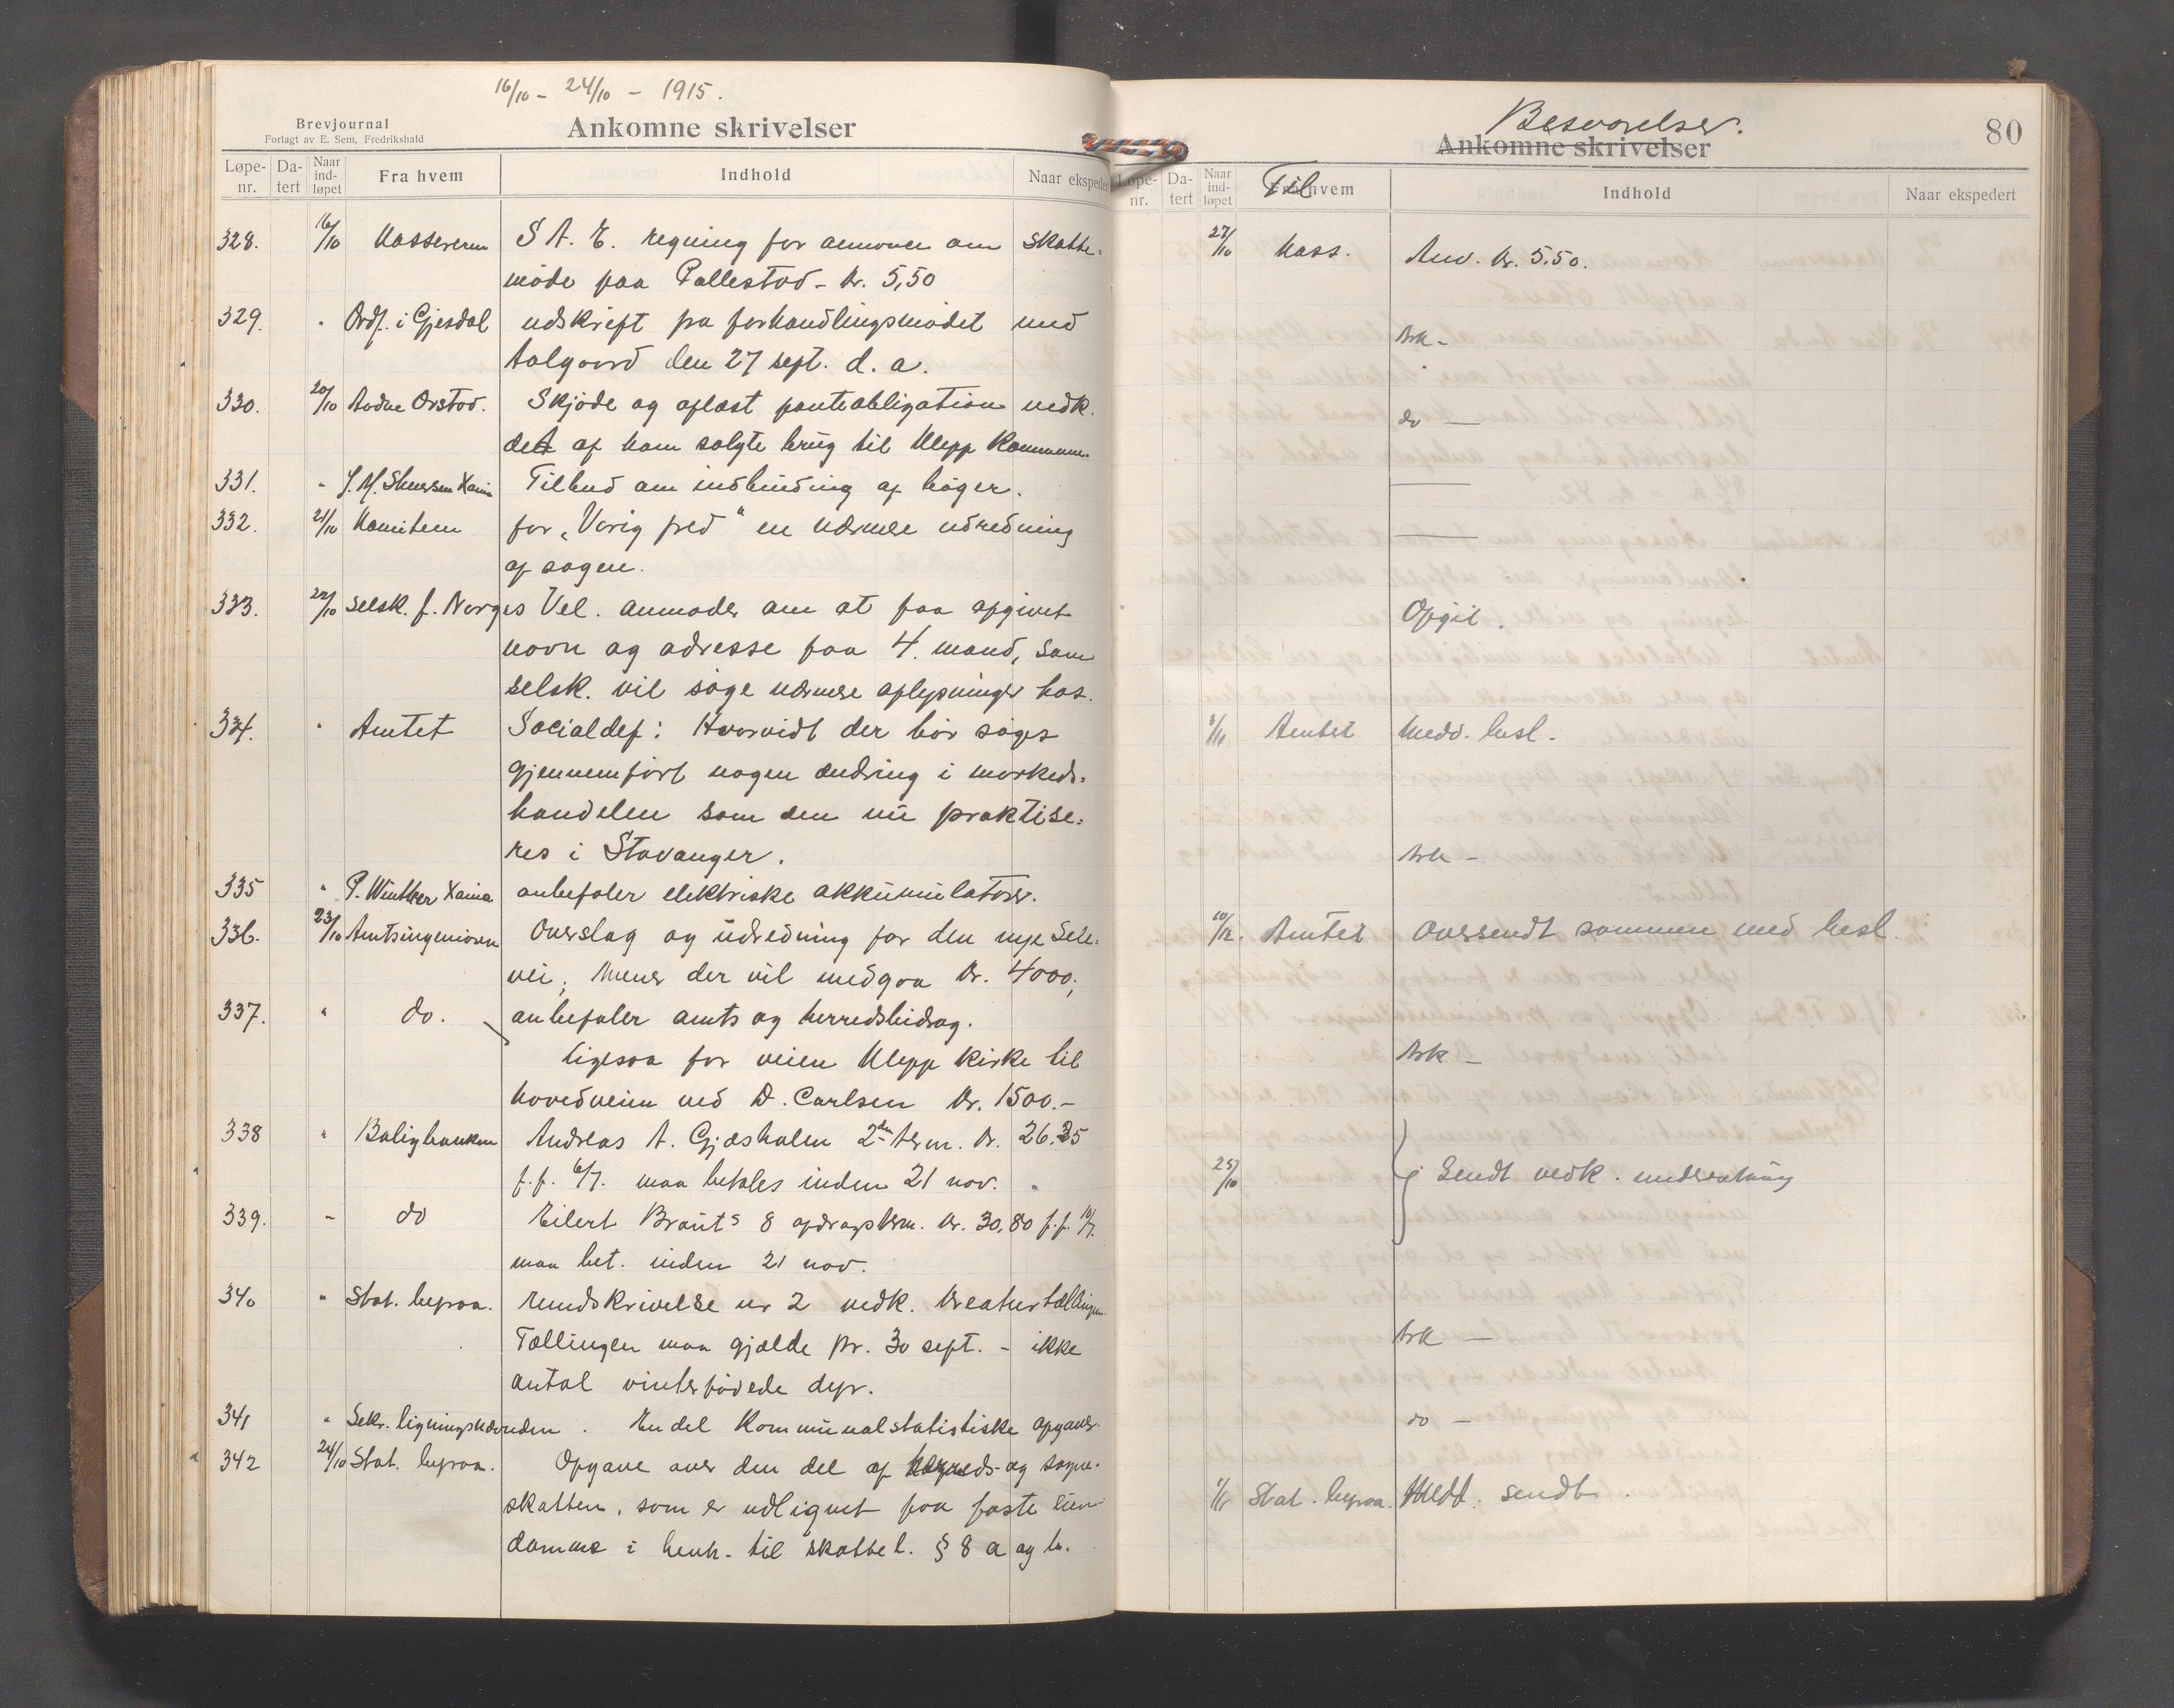 16/10 - 24/10 - 1915.
Brevjournal
Forlagt av E. Sem, Fredrikshald
Ankomne skrivelser
Løpe-nr. Da-tert Naar ind-løpet Fra hvem Indhold Naar ekspedert
328. 16/10 Kassereren S A. E. regning for annonce om skatte-
møde paa Pallestad - Kr. 5,50
329. " Ordf. i Gjesdal udskrift fra forhandlingsmødet med
Aalgaard den 27 sept. d. a.
330. 20/10 Aadne Orstad. Skjøde og aflæst panteobligation vedk.
det af ham solgte brug til Klepp Kommune.
331. " Xania Tilbud om indbinding af bøger.
332. 21/10 Komiteen for "Varig fred" en nærmere udredning
af sagen.
333. 22/10 Selsk. f. Norges Vel. anmoder om at faa opgivet
navn og adresse paa 4. mand, som
selsk. vil søge nærmere oplysninger hos.
334. " Amtet Socialdep: Hvorvidt der bør søges
gjennemført nogen ændring i markeds-
handelen som den nu praktise-
res i Stavanger.
335 " P. Winther Xania anbefaler elektriske akkumulatorer.
336. 23/10 Amtsingeniøren Overslag og udredning for den nye Sele-
vei, mener der vil medgaa Kr. 4000;
337. " do. anbefaler amts og herredsbidrag.
ligesaa for veien Klepp Kirke til
hovedveien ved D. Carlsen Kr. 1500.-
338 " Boligbanken Andreas A. Gjæsholm 2den term. Kr. 26.35
f.f. 6/7. maa betales inden 21 nov.
339. " do Eilert Brauts 8 afdragsterm. Kr. 30,80 f.f. 10/7.
maa bet. inden 21 nov.
340 " Stat. byraa. rundskrivelse nr 2 vedk. Kreaturtællingen.
Tællingen maa gjælde pr. 30 sept. - ikke
antal vinterfødede dyr.
341 " Sekr. ligningsnævnden. En del kommunalstatistiske opgaver.
342 24/10 Stat. byraa. Opgave over den del af herreds- og sogne-
skatten, som er udlignet paa faste eien-
domme i henh. til skattel. § 8 a og b.
Besvarelser.
Ankomne skrivelser
80
Løpe-nr. Da-tert Naar ind-løpet Til Fra hvem Indhold Naar ekspedert
27/10 Kass. Anv. Kr. 5.50.
Ark -
do —
Opgit.
Amtet Medd. besl.
Ark -
10/12. Amtet Oversendt sammen med besl.
Ark -
25/10 Sendt vedk. underretning
Ark —
do -
Stat. byraa. Medd. sendt.